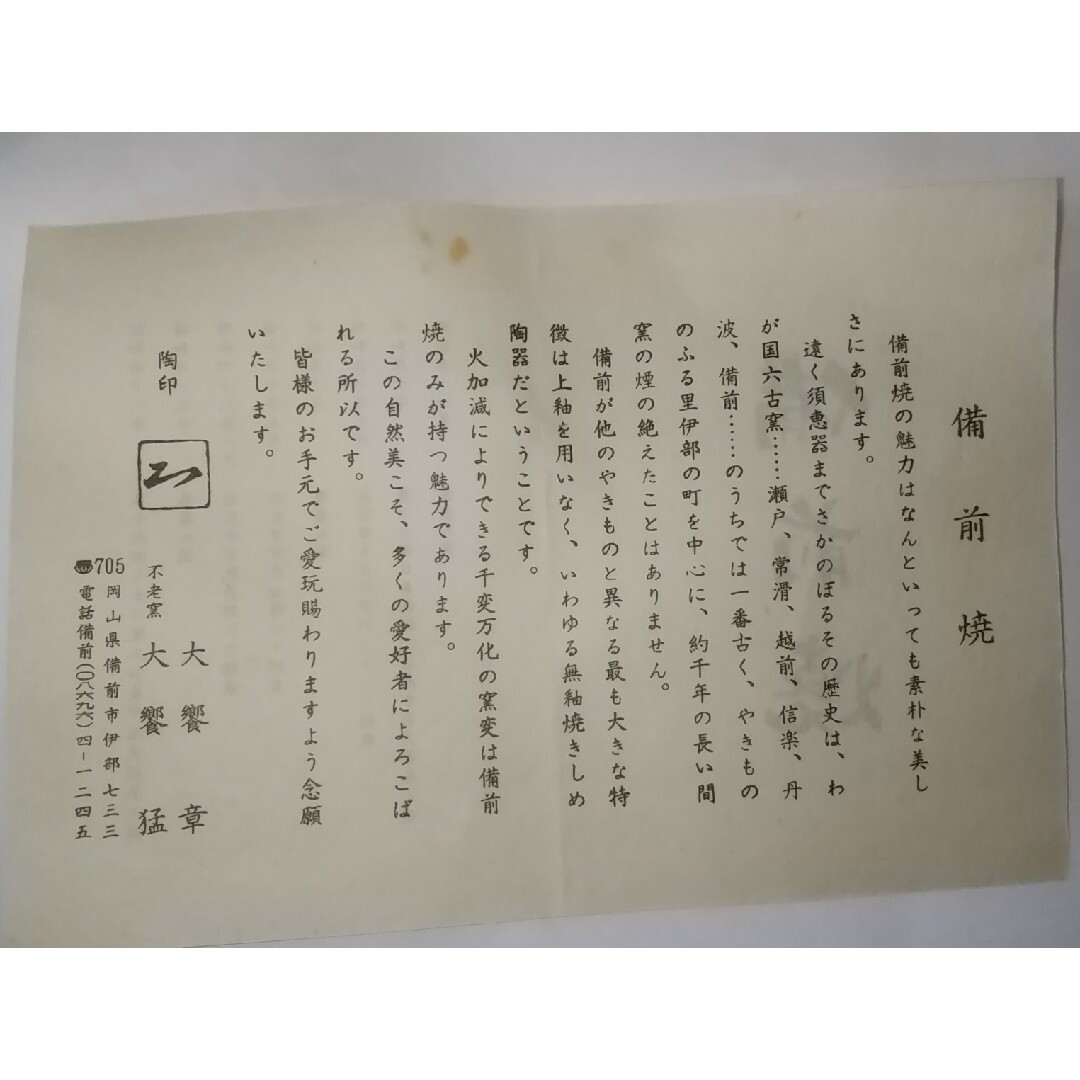 備前焼
備前焼の魅力はなんといっても素朴な美し
さにあります。
遠く須恵器までさかのぼるその歴史は、わ
が国六古窯……瀬戸、常滑、越前、信楽、丹
波、備前……のうちでは一番古く、やきもの
のふる里伊部の町を中心に、約千年の長い間
窯の煙の絶えたことはありません。
備前が他のやきものと異なる最も大きな特
徴は上釉を用いなく、いわゆる無釉焼きしめ
陶器だということです。
火加減によりできる千変万化の窯変は備前
焼のみが持つ魅力であります。
この自然美こそ、多くの愛好者によろこば
れる所以です。
皆様のお手元でご愛玩賜わりますよう念願
いたします。
陶印
大饗章
不老窯 大饗猛
705 岡山県備前市伊部七三三
電話備前(〇八六九六)四-一二四五